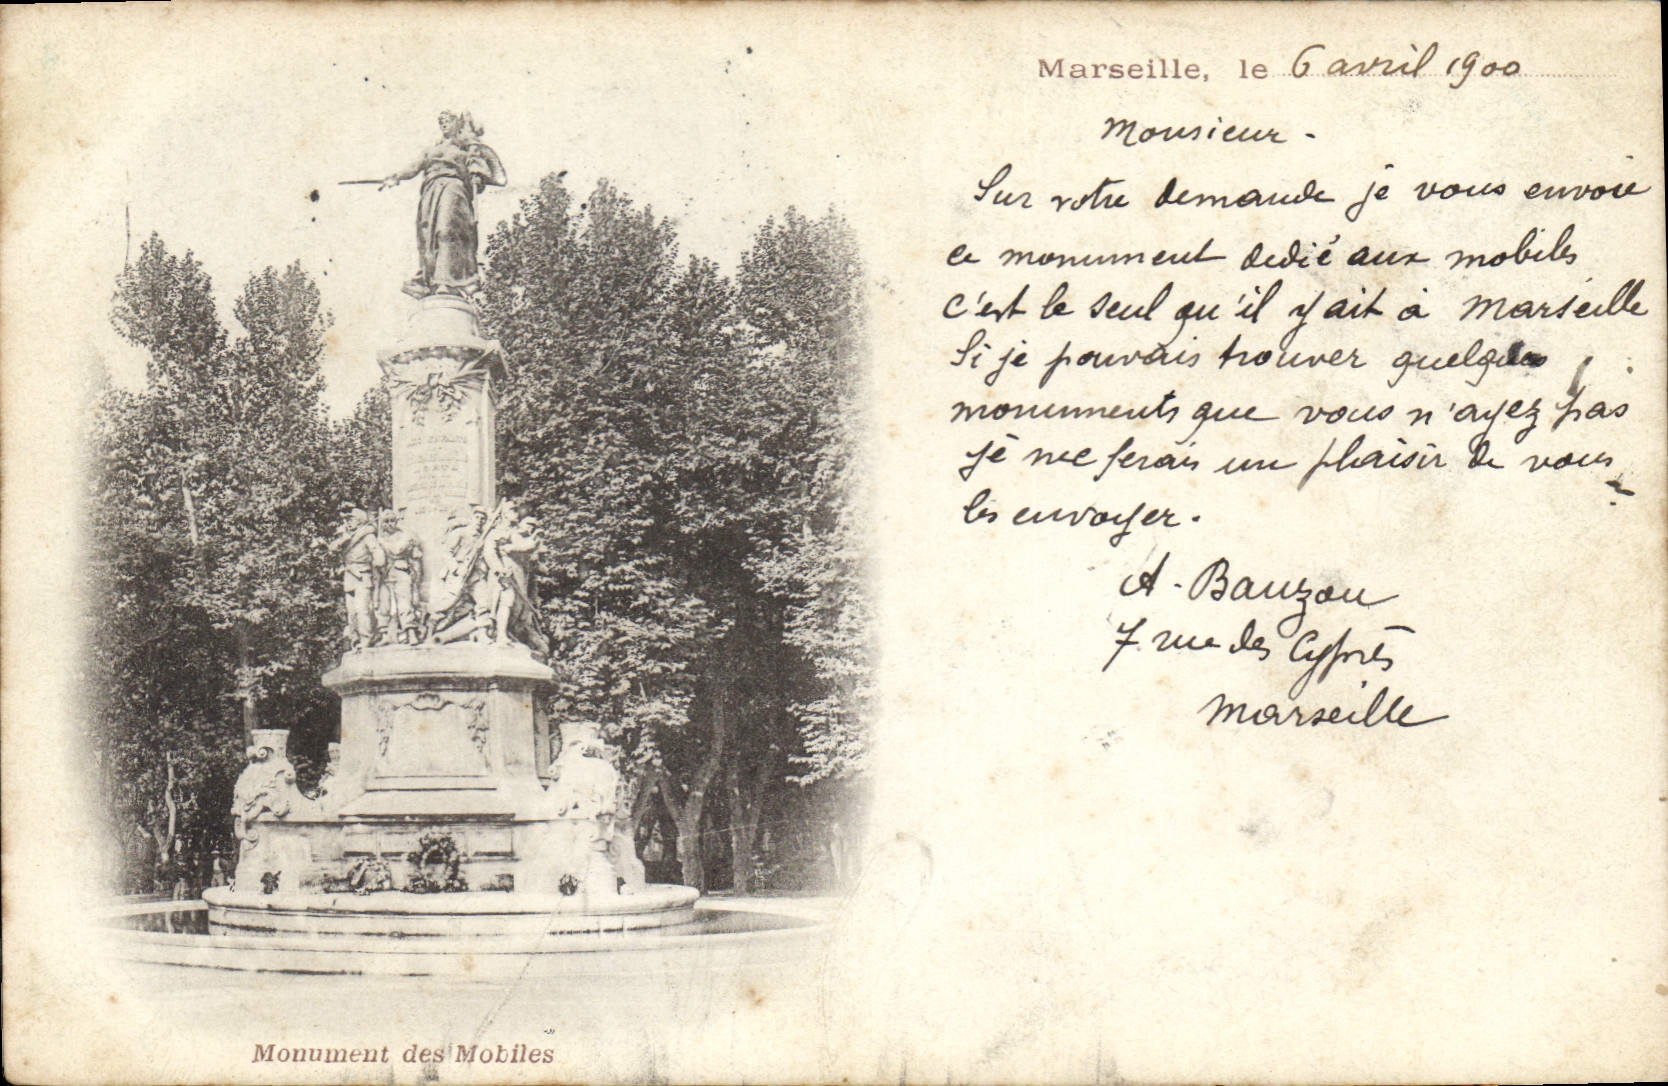 Marseille, le 6 avril 1900
Monsieur -
Sur votre demande je vous envoie
ce monument dedié aux mobiles
c'est le seul qu'il y ait à Marseille
Si je pouvais trouver quelques
monuments que vous n'ayez pas
je me ferais un plaisir de vous
les envoyer.
A. Bauzou
7 rue des Cyprès
Marseille
Monument des Mobiles